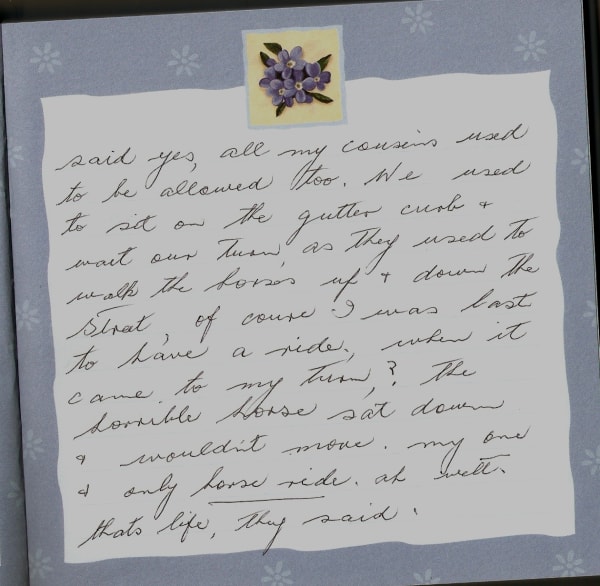 said yes, all my cousins used
to be allowed too. We used
to sit on the gutter curb &
wait our turn, as they used to
walk the horses up & down the
Street, of couse I was last
to have a ride, when it
came to my turn,? the
horrible horse sat down
& wouldn't move. my one
& only horse ride. ah well.
thats life, they said.